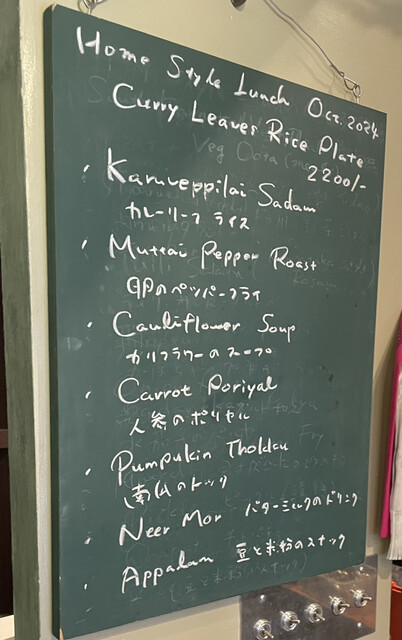 Home Style Lunch Oct. 2024
Curry Leaves Rice Plate
2200/-
・Karuveppilai Sadam
カレーリーフ ライス
・Muttai Pepper Roast
卵のペッパーフライ
・Cauliflower Soup
カリフラワーのスープ
・Carrot Poriyal
人参のポリヤル
・Pumpukin Thokku
南瓜のトック
・Neer Mor バターミルクのドリンク
・Appalam 豆と米粉のスナック